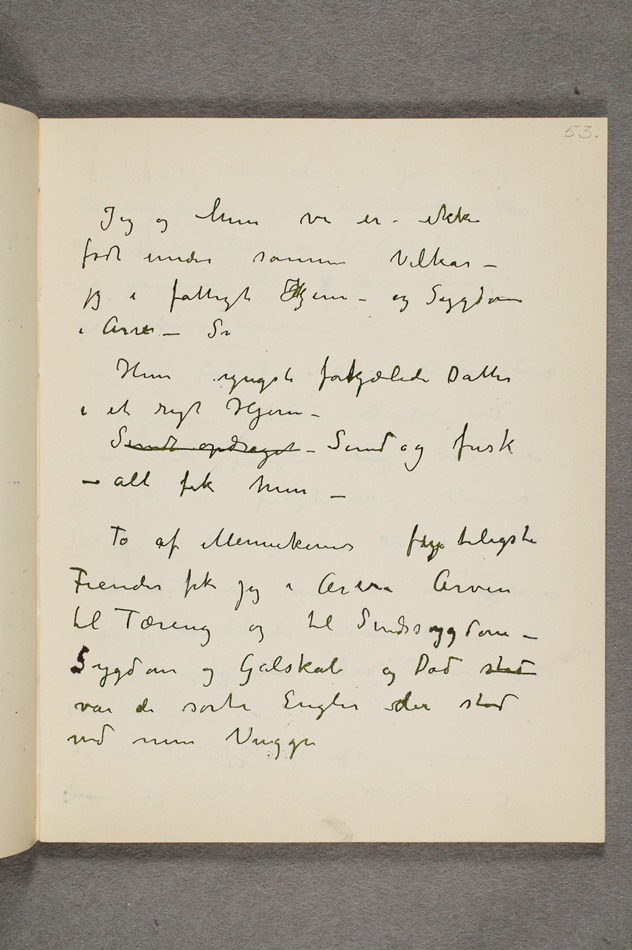 53.
Jeg og hun vi er - ikke
født under samme Vilkar –
jeg i fattigt Hjem – og Sygdom
i Arv – Sa
Hun yngste forkjælede Datter
i et rigt Hjem –
Sundt opdraget – Sund og frisk
– alt fik hun –
To af Menneskenes frygteligste
Fiender fik jeg i Arv Arven
til Tæring og til Sindssygdom –
Sygdom og Galskab og Død stod
var de sorte Engler der stod
ved min Vugge